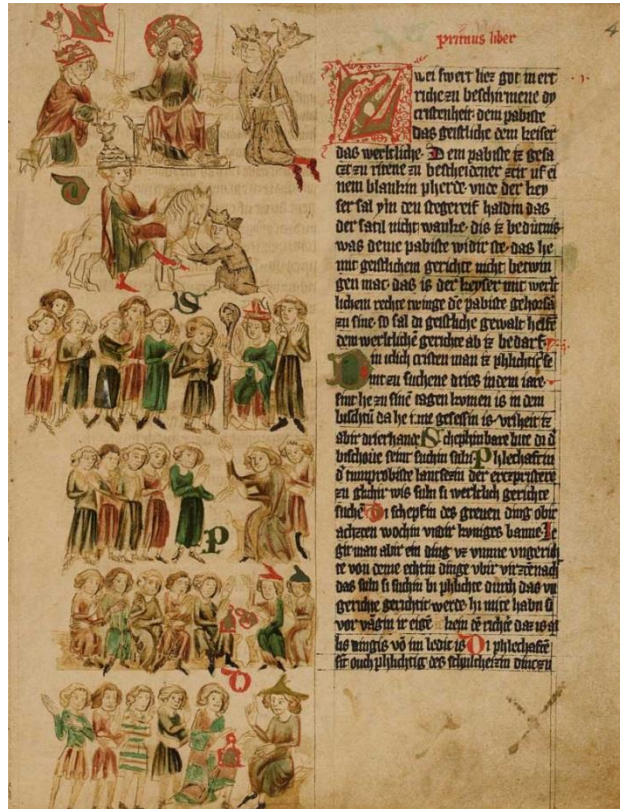 primus liber
4
Zwei swert liez got in ert
riche zu beschirmene dy
cristenheit dem pabiste
das geistliche dem keiser
das werltliche Dem pabiste iz gesa
czt zu ritene zu bescheidener zcit uf ei
nem blankin pherde vnde der key
ser sal ym den stegereif haldin das
der satil nicht wanke dis iz beduitnis
was deme pabiste widir ste das he
mit geistlichem gerichte nicht betwin
gen mac das is der keyser mit werlt
lichem rechte twinge dē pabiste gehorsā
zu sine so sal di geistliche gewalt helfē
dem werltlichē gerichte ab iz bedarf
in iclich cristen man iz phlichtic se
nit zu suchene dries in dem iare
sint he zu sinē tagen komen is in dem
bischtū da he inne gesessin is vriheit iz
abir drierhande Schephinbare lute di d
bischoue seint suchin suln Phlechaftin
d tumprobiste lantsezin der erczpristere
zu glichir wis suln si werltlich gerichte
suchē Di schepfin des greuen ding obir
achzen wochin vndir koniges banne Le
git man abir ein ding vz vmme vngerich
te von deme echtin dinge vbir virzēnach
das suln si suchin bi phlichte durch das vn
gerichte gerichtit werde hi mite habn si
vor vangin ir eigē kein dē richt̄ daz is al
lis dingis vō im ledic is Di phlechaftē
sīt ouch phlichtig des schulcheizin dinc zu
D
S
P
D